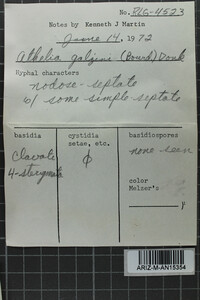 No. RLG-4523
Notes by Kenneth J Martin
June 14, 1972
Athelia galzinii (Bourd) Donk
Hyphal characters
nodose-septate
w/ some simple septate
basidia
cystidia
setae, etc.
basidiospores
clavate
4-sterigmate
φ
none seen
color
Melzer's
μ
ARIZ-M-AN15354